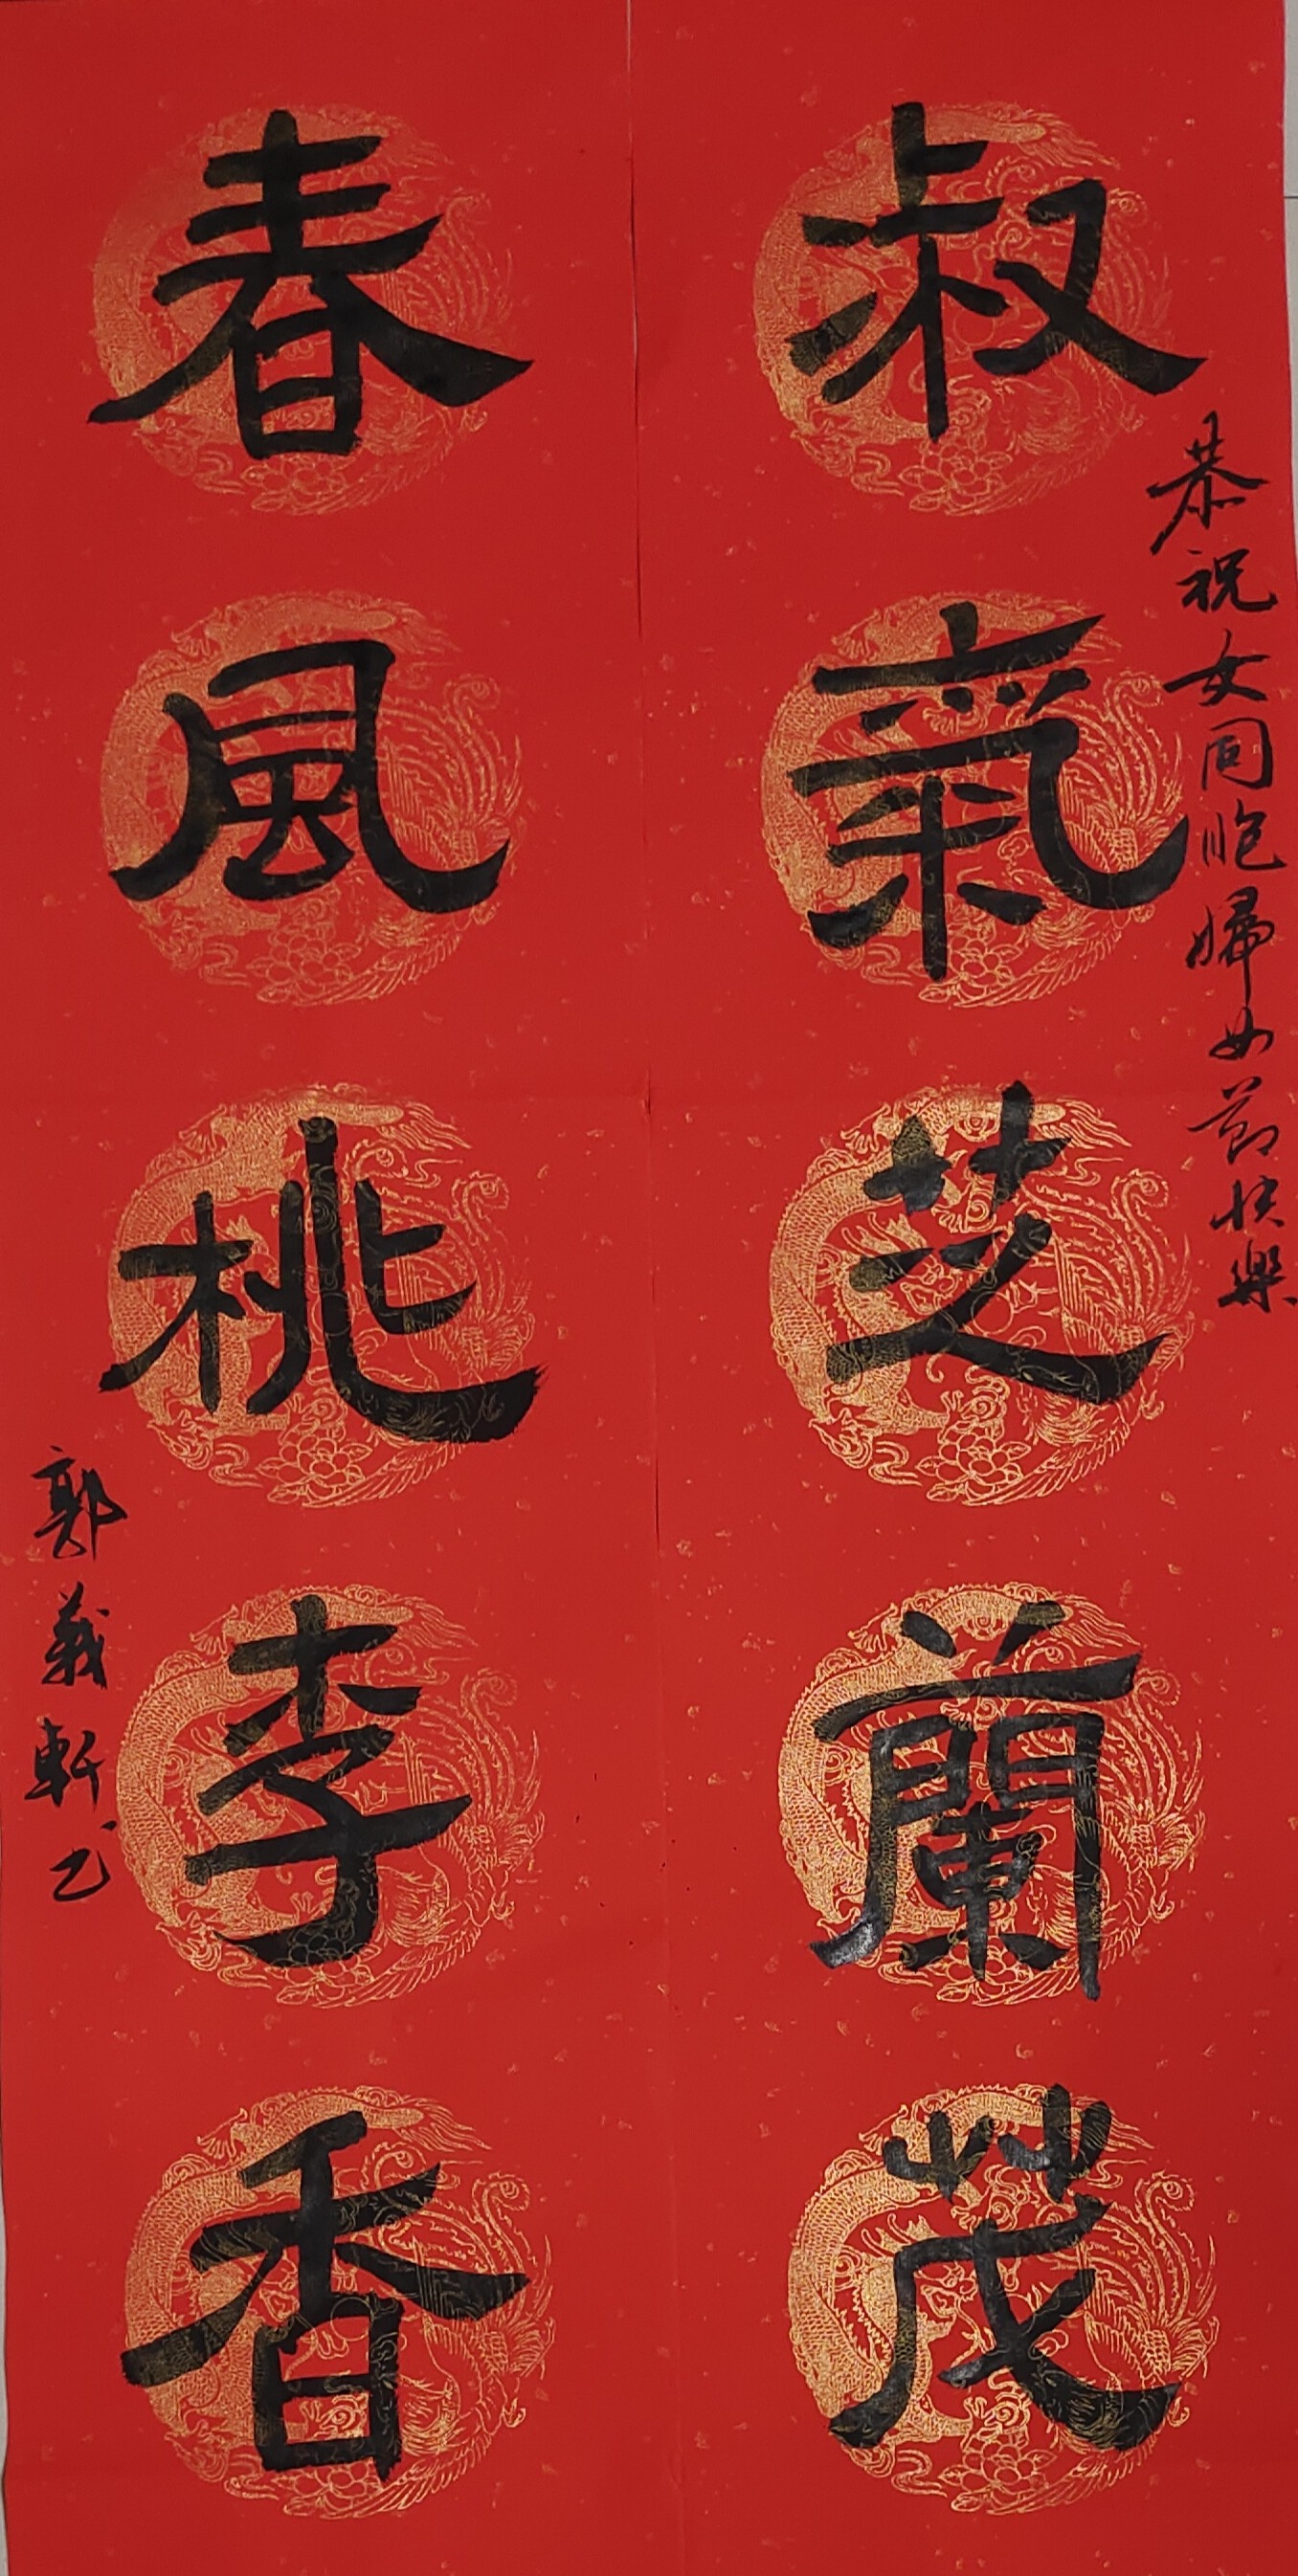 恭祝女同胞婦女節快樂
叔氣芝蘭茂
春風桃李香
郭義軒乙